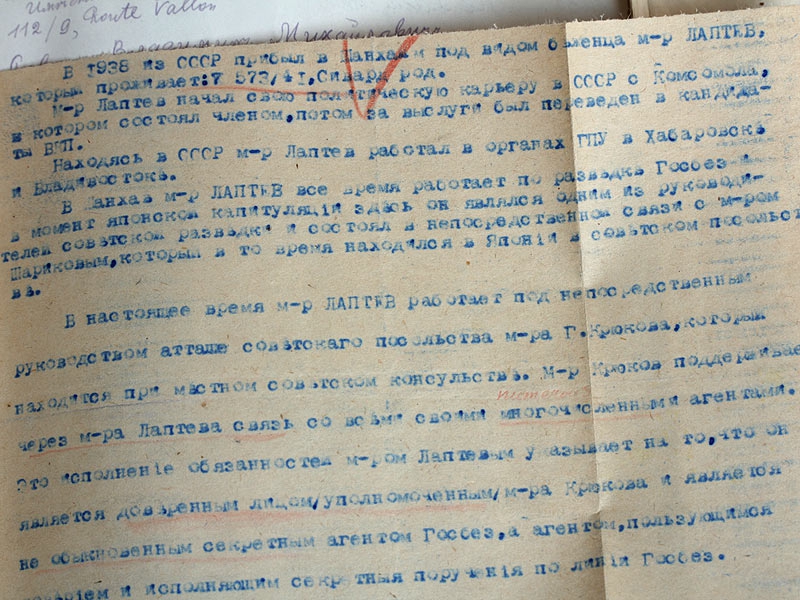 112/9, Route Vallon
В 1938 из СССР прибыл в Шанхай под видом беженца м-р ЛАПТЕВ,
который проживает: 573/41, Сивард род.
М-р Лаптев начал свою политическую карьеру в СССР с Комсомола,
в котором состоял членом,потом за выслуги был переведен в кандида-
ты ВКП.
Находясь в СССР м-р Лаптев работал в органах ГПУ в Хабаровскѣ
и Владивостокѣ.
В Шанхаѣ м-р ЛАПТЕВ все время работает по развѣдкѣ Госбез и
в момент японской капитуляціи здѣсь он являлся одним из руководи-
телей совѣтской развѣдки и состоял в непосредственной связи с м-ром
Шариковым,который в то время находился в Японіи в совѣтском посольст
вѣ.
В настоящее время м-р ЛАПТЕВ работает под непосредственным
руководством атташе совѣтскаго посольства м-ра Г.Крюкова,который
находится при мѣстном совѣтском консульствѣ. М-р Крюков поддерживае
через м-ра Лаптева связь со всѣми своими многочисленными агентами.
Это исполненіе обязанностей м-ром Лаптевым указывает на то,что он
является довѣренным лицом/уполномоченным/м-ра Крюкова и является
не обыкновенным секретным агентом Госбез,а агентом,пользующимся
и исполняющим секретныя порученія по линіи Госбез.